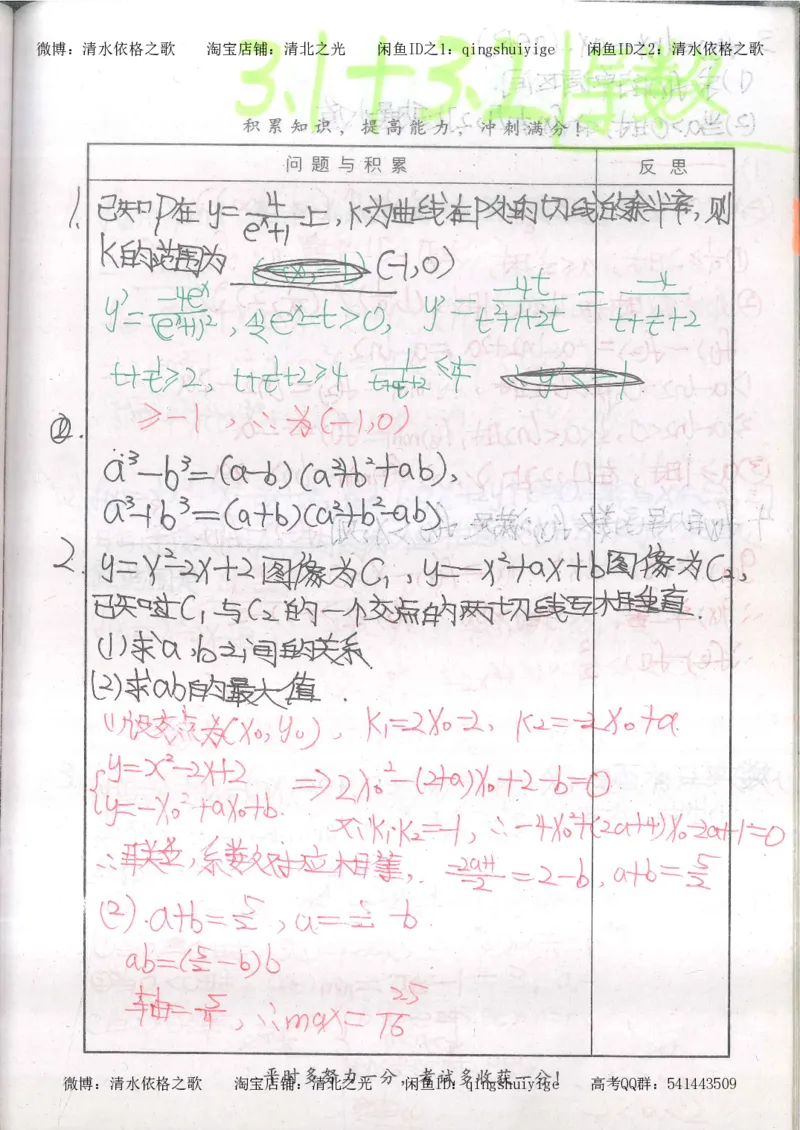 微博：清水依格之歌 淘宝店铺：清北之光 闲鱼ID之1：qingshuiyige 闲鱼ID之2：清水依格之歌
3.1+3.2 导数
积累知识，提高能力，冲刺满分！
问题与积累 反思
1. 已知P在y=4/(eˣ+1)上，k为曲线在P处的切线的斜率，则
k的范围为 (-1,0)
y'=-4eˣ/(eˣ+1)²，令eˣ=t>0，y'=-4t/(t²+1+2t)=-4/(t+1/t+2)
t+1/t≥2，t+1/t+2≥4 1/(t+1/t+2)≤1/4
≥-1，∴为(-1,0)
②.
a³-b³=(a-b)(a²+b²+ab)，
a³+b³=(a+b)(a²+b²-ab)
2. y=x²-2x+2图像为C₁，y=-x²+ax+b图像为C₂，
已知过C₁与C₂的一个交点的两切线互相垂直.
(1)求a，b之间的关系
(2)求ab的最大值.
(1)设交点为(x₀,y₀)，k₁=2x₀-2，k₂=-2x₀+a
{y=x²-2x+2
y=-x₀²+ax₀+b. ⇒2x₀²-(2+a)x₀+2-b=0
又∵k₁k₂=-1，∴-4x₀²+(2a+4)x₀-2a+1=0
∴联立，系数对应相等，(-2a+1)/-2=2-b，a+b=5/2
(2).a+b=5/2，a=5/2-b
ab=(5/2-b)b
轴=-5/4，∴max=25/16
平时多努力一分，考试多收获一分！
微博：清水依格之歌 淘宝店铺：清北之光 闲鱼ID：qingshuiyige 高考QQ群：541443509